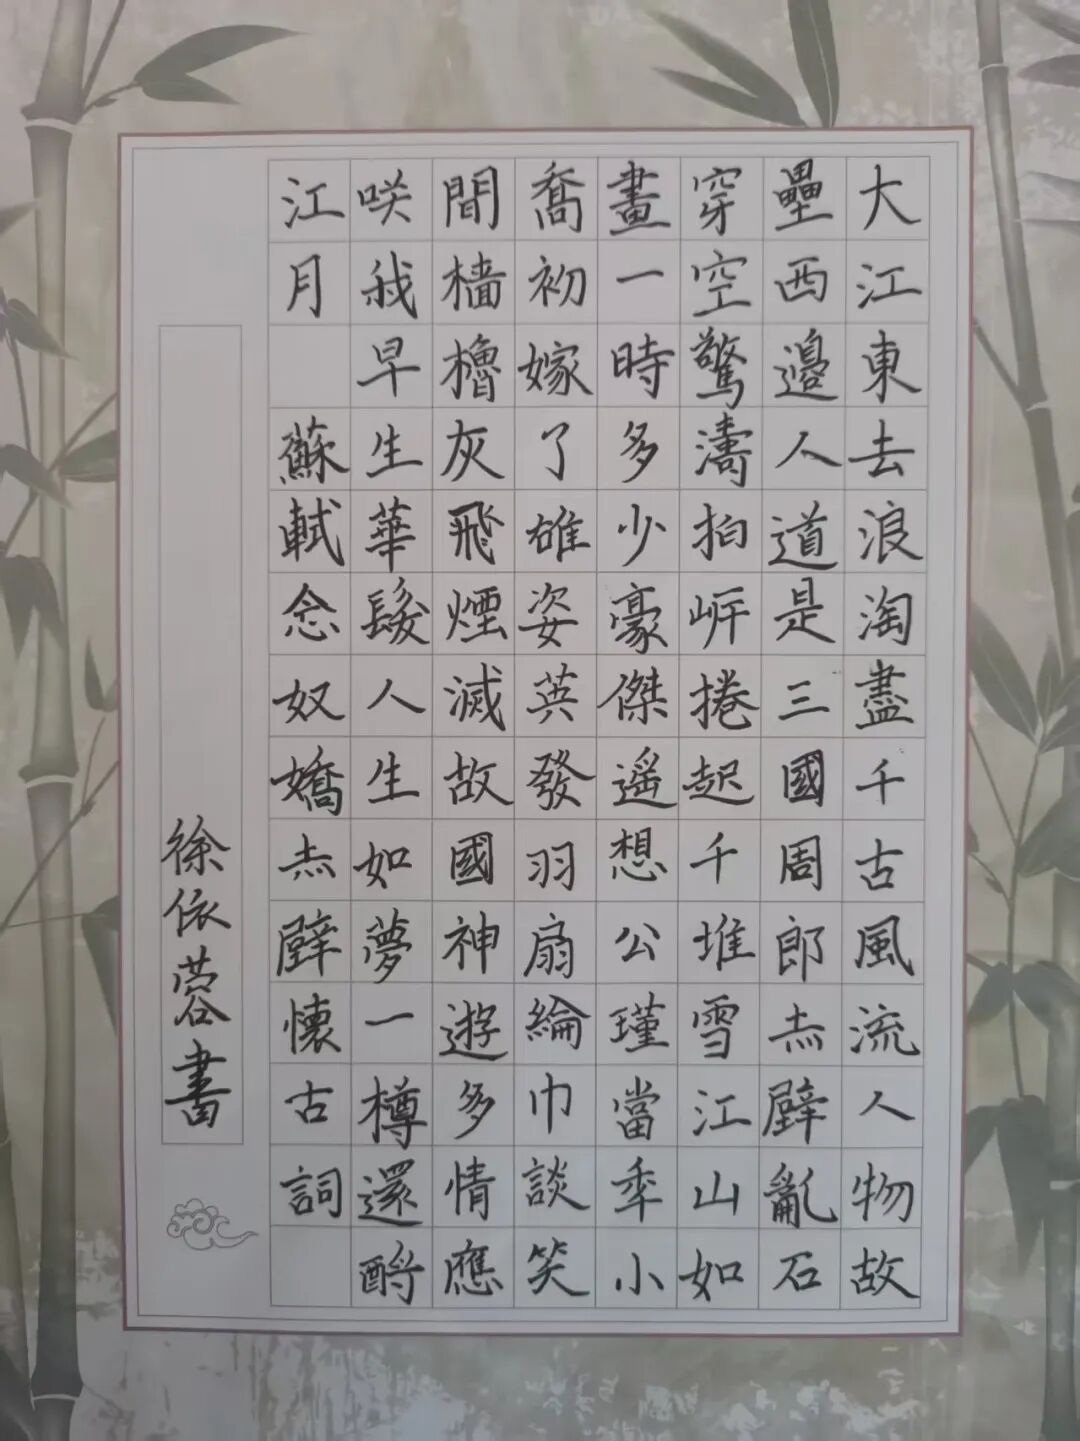 大江東去浪淘盡千古風流人物故
壘西邊人道是三國周郎赤壁亂石
穿空驚濤拍岸捲起千堆雪江山如
畫一時多少豪傑遙想公瑾當年小
喬初嫁了雄姿英發羽扇綸巾談笑
間檣櫓灰飛煙滅故國神遊多情應
咲我早生華髮人生如夢一樽還酹
江月 蘇軾念奴嬌赤壁懷古詞
徐依蓉書